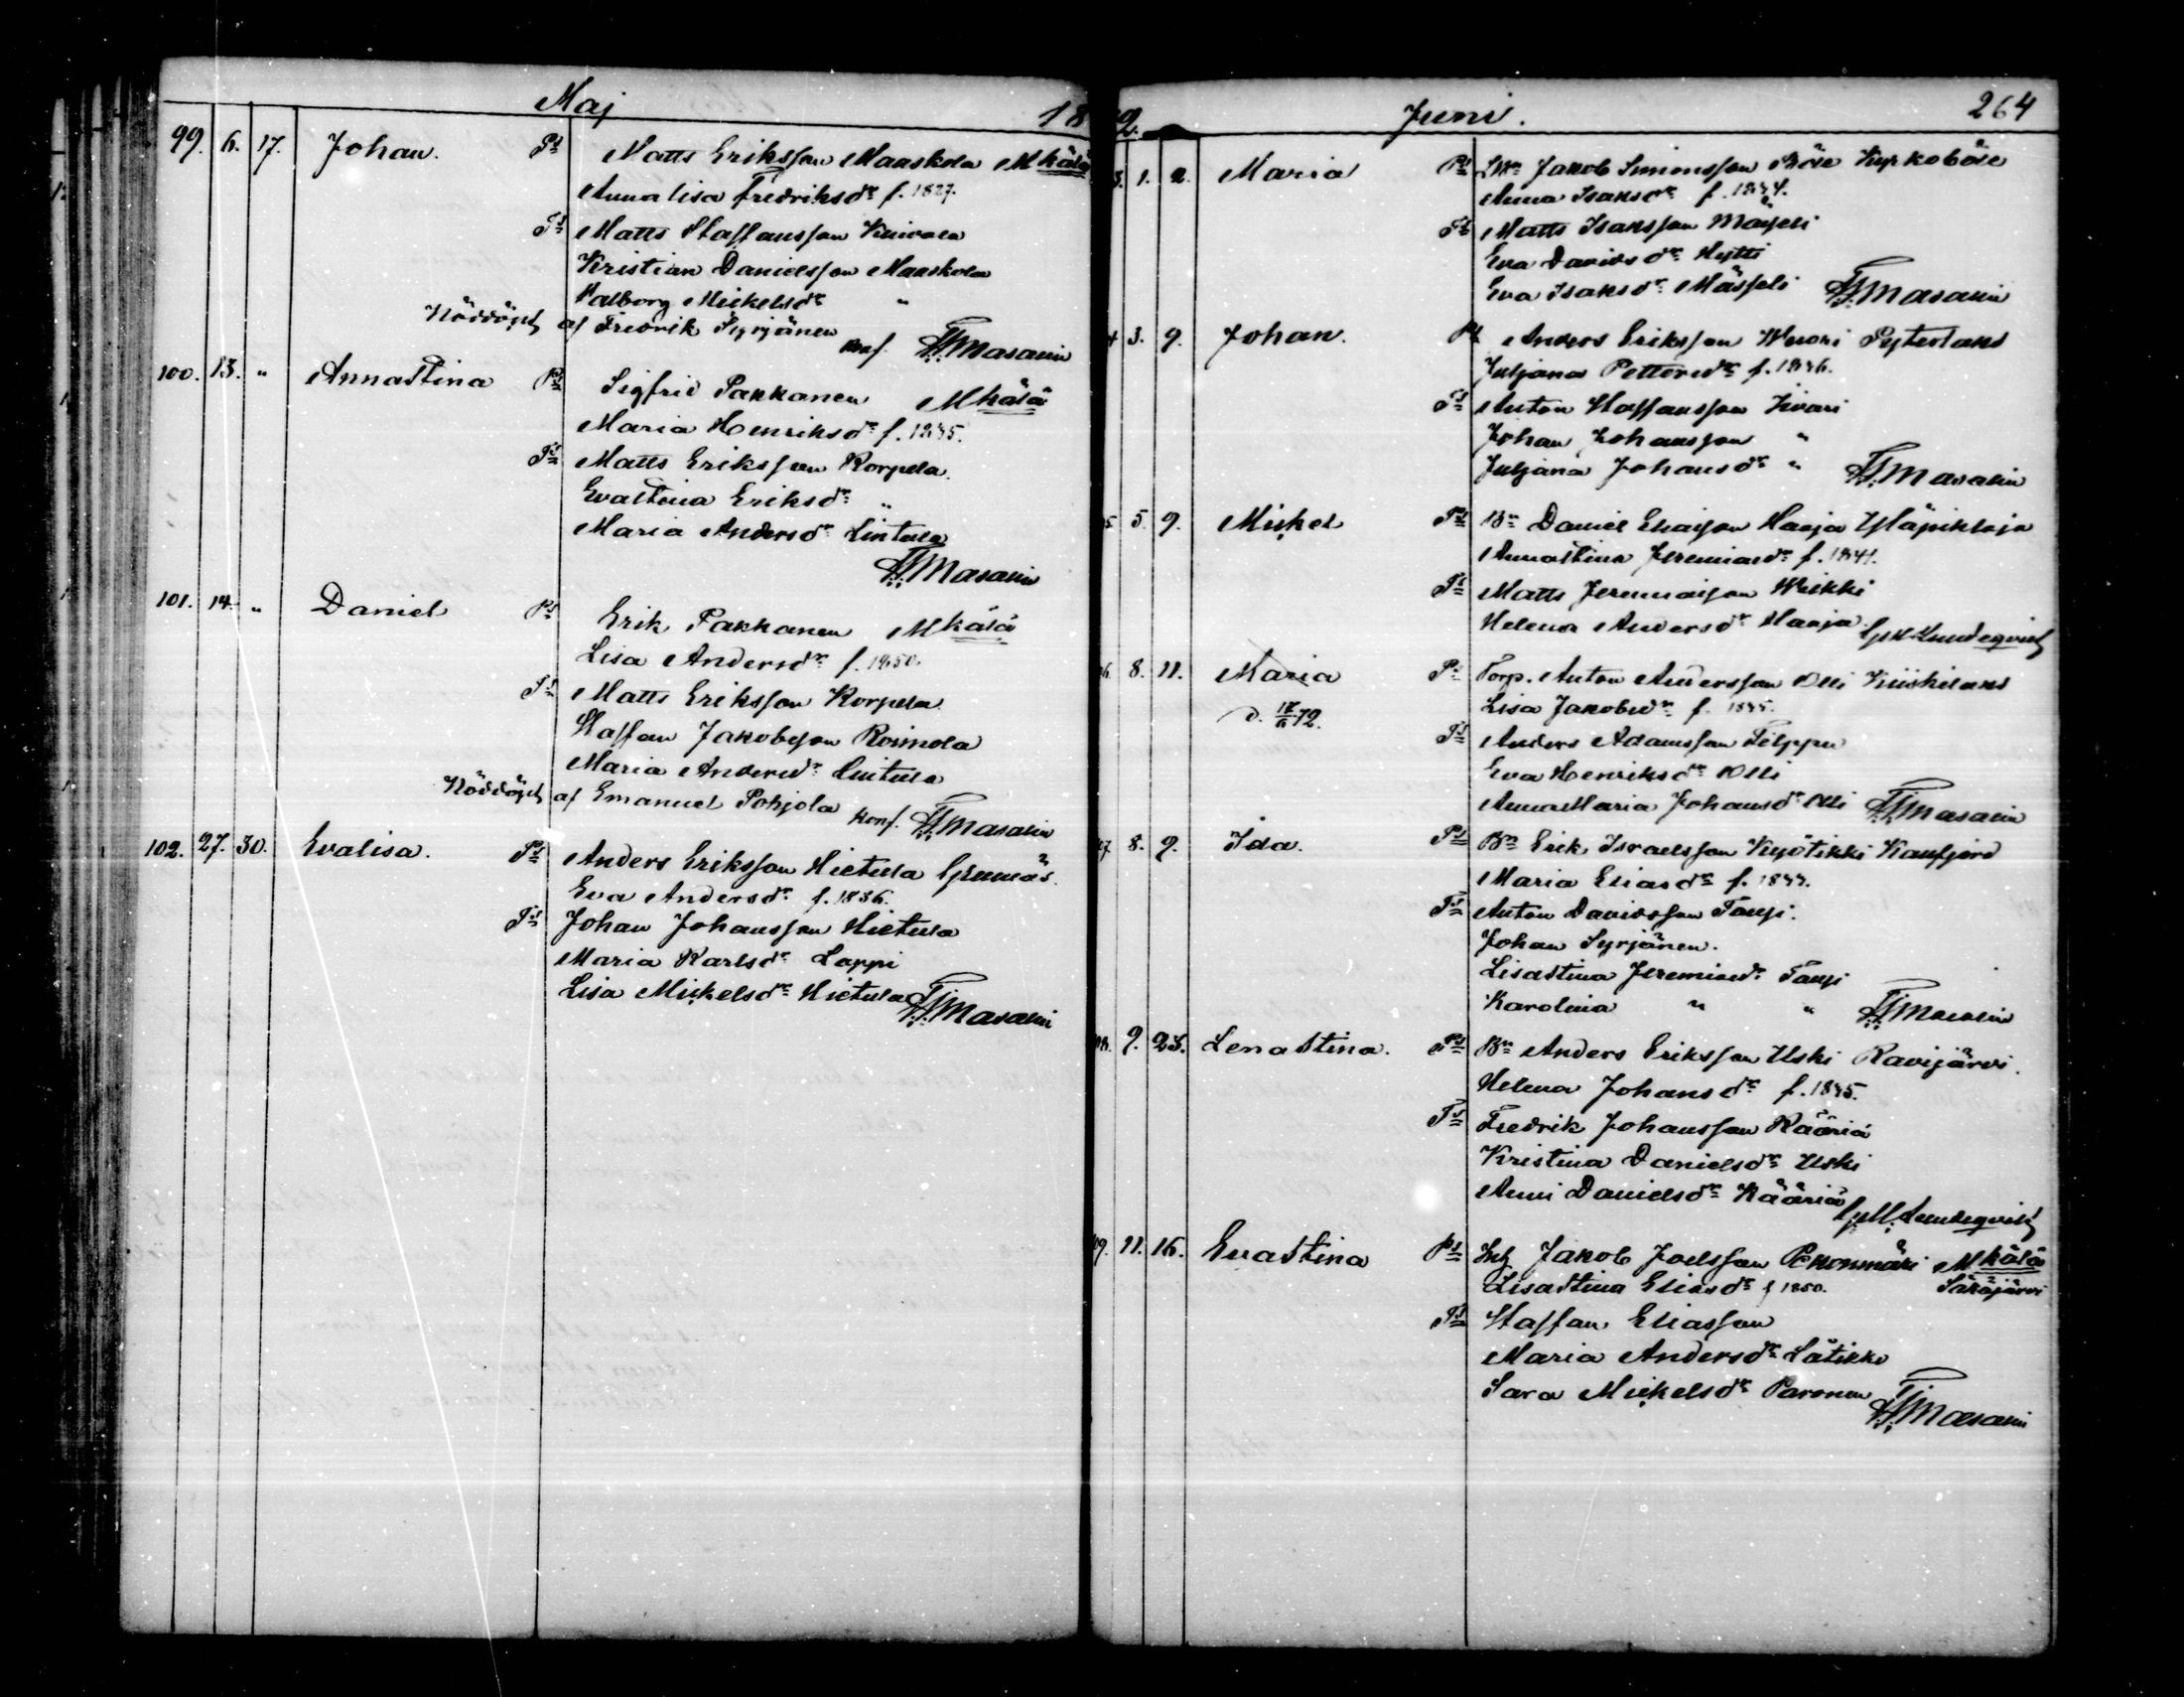 Maj 18
99. 6. 17. Johan. Ps Matts Eriksson Maaskola Mkälä
Annalisa Fredriksdr f. 1827.
Ts Matts Staffansson Knivala
Kristian Danielsson Maaskola
Valborg Mickelsdr "
Nöddöpt af Fredrik Syrjänen konf. Masalin
100. 13. " Annastina Ps Sigfrid Pakkanen Mkälä
Maria Henriksdr f. 1845.
Ts Matts Eriksson Korpela.
Evastina Eriksdr "
Maria Andersdr Lintula
Masalin
101. 14. " Daniel Ps Erik Pakkanen Mkälä
Lisa Andersdr f. 1850.
Ts Matts Eriksson Korpela.
Staffan Jakobsson Roimola
Maria Andersdr Lintula
Nöddöpt af Emanuel Pohjola konf. Masalin
102. 27. 30. Evalisa. Ps Anders Eriksson Hietula
Eva Andersdr f. 1836.
Ts Johan Johansson Hietula
Maria Karlsdr Lappi
Lisa Mickelsdr Hietula Masalin
2. Juni. 264
3. 1. 2. Maria Ps Jakob Simonsson
Anna Isaksdr f. 1844.
Ts Matts Isaksson Mässeli
Eva Davidsdr Hytti
Eva Isaksdr Mässeli Masalin
4 3. 9. Johan. Ps Anders Eriksson Wuori Pyterlaks
Juljana Pettersdr f. 1846.
Ts Anton Staffansson Sivari
Johan Johansson "
Juljana Johansdr " Masalin
5. 5. 9. Mickel Ps Bn Daniel Eliasson Haaja
Annastina Jeremiasdr f. 1841.
Ts Matts Jeremiasson Weikki
Helena Andersdr Haaja. Lundeqvist
6. 8. 11. Maria Ps Torp. Anton Andersson Olli Kiiskilaks
d. 72. Lisa Jakobsdr f. 1845.
Ts Anders Adamsson Filppu
Eva Henriksdr Olli
AnnaMaria Johansdr Olli Masalin
7. 8. 9. Ida. Ps Bn Erik Israelsson
Maria Eliasdr f. 1844.
Ts Anton Davidsson Taupi.
Johan Syrjänen.
Lisastina Jeremiasdr Taupi
Karolina " " Masalin
9. 23. Lenastina. Ps Bn Anders Eriksson Uski Ravijärvi.
Helena Johansdr f. 1845.
Ts Fredrik Johansson Kääriä
Kristina Danielsdr Uski
Anni Danielsdr Kääriä
Lundeqvist
09. 11. 16. Evastina Ps Jakob Joelsson Pekonmäki Mkälä
Lisastina Eliasdr f 1850. Säkäjärvi
Ts Staffan Eliasson
Maria Andersdr Lätikkö
Sara Mickelsdr Paronen
Masalin